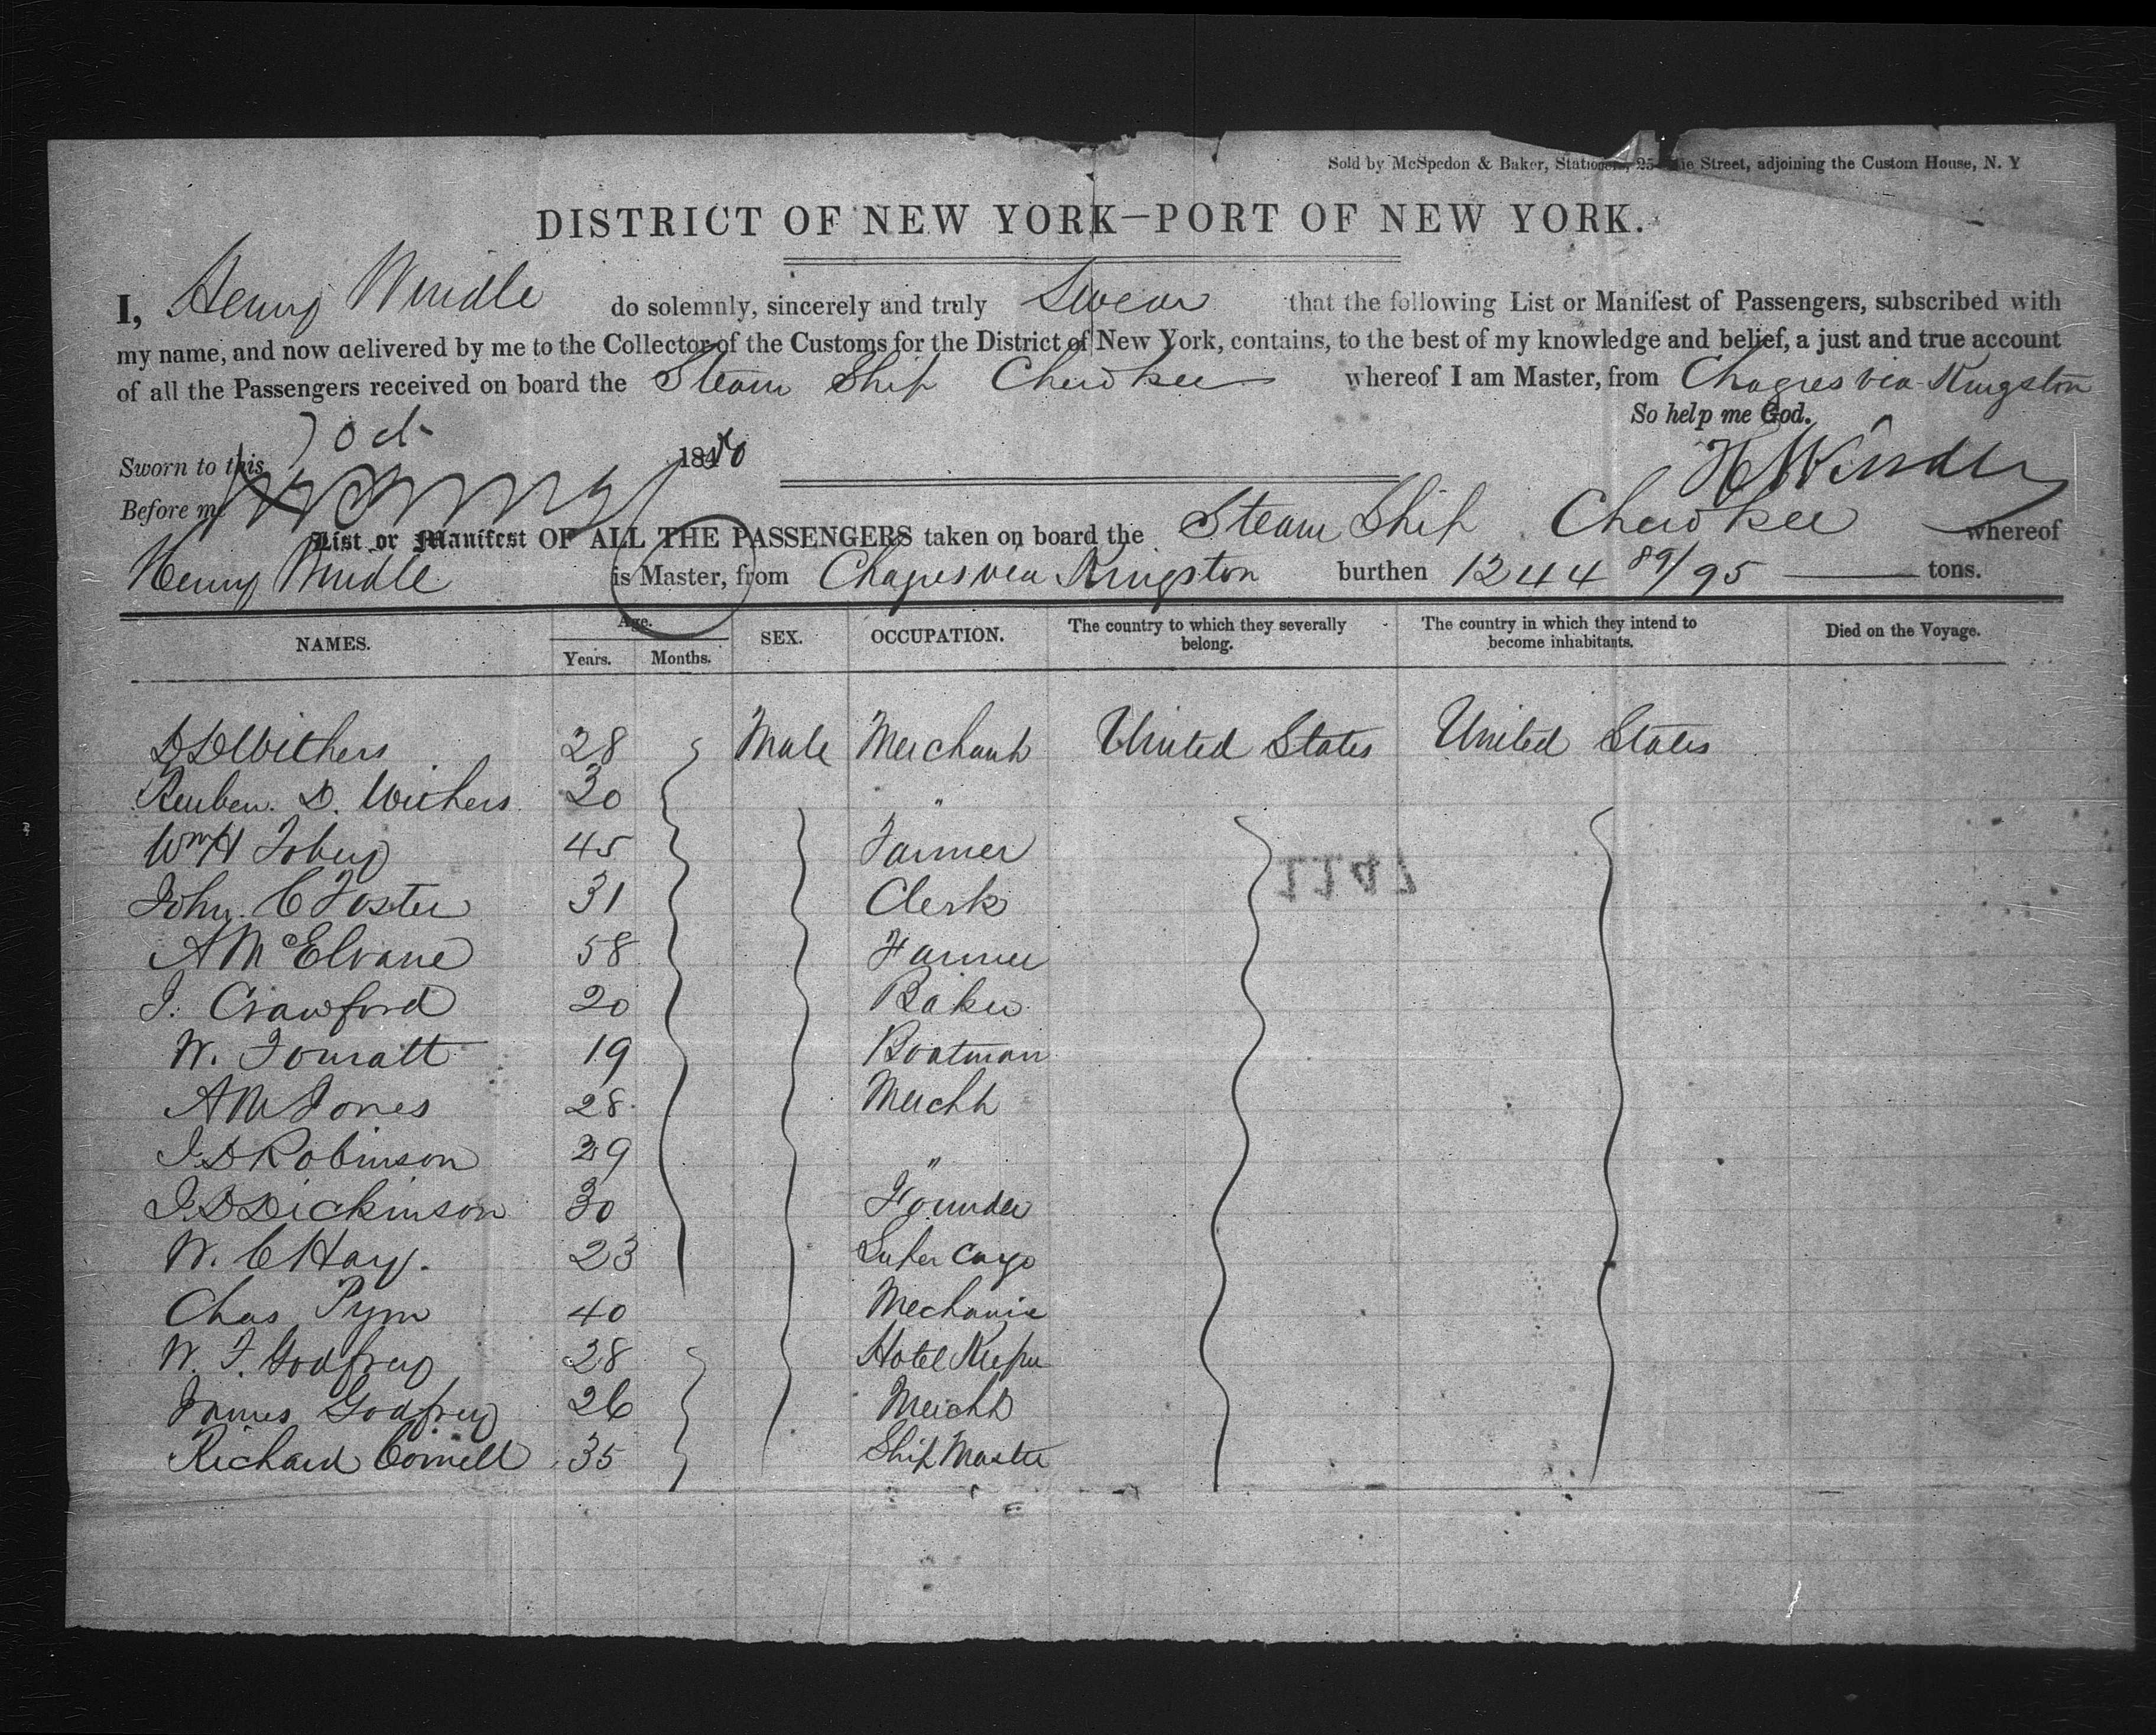 Sold by McSpedon & Baker, Stationers, 25 Street, adjoining the Custom House, N. Y
DISTRICT OF NEW YORK—PORT OF NEW YORK.
I, Henry Windle do solemnly, sincerely and truly Swear that the following List or Manifest of Passengers, subscribed with
my name, and now delivered by me to the Collector of the Customs for the District of New York, contains, to the best of my knowledge and belief, a just and true account
of all the Passengers received on board the Steam Ship Cherokee whereof I am Master, from Chagres via Kingston
So help me God.
Sworn to this 7 Oct 1850
H Windle
Before me
List or Manifest OF ALL THE PASSENGERS taken on board the Steam Ship Cherokee whereof
Henry Windle is Master, from Chagres via Kingston burthen 1244 89/95 tons.
NAMES. Age. Years. Months. SEX. OCCUPATION. The country to which they severally belong. The country in which they intend to become inhabitants. Died on the Voyage.
D D Withers 28 Male Merchant United States United States
Reuben. D. Withers 30 "
Wm H Tobey 45 Farmer
John. C Foster 31 Clerk
A McElvane 58 Farmer
J. Crawford 20 Baker
W. 19 Boatman
A M Jones 28 Mercht
J D Robinson 29 "
J D Dickinson 30 Founder
W. C Hay. 23 Super Cargo
Chas Pym 40 Mechanic
W. J. Godfrey 28 Hotel Keeper
James Godfrey 26 Mercht
Richard Cornell 35 Ship Master
1147